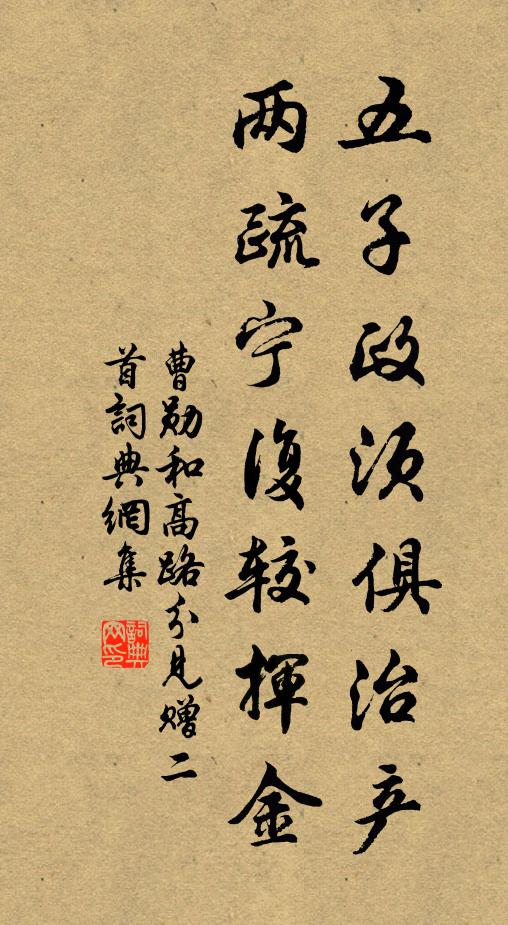 五子政须俱治产
两疏宁復较揮金
曹勋和高路分見赠二
首詞典網集
詞典網印